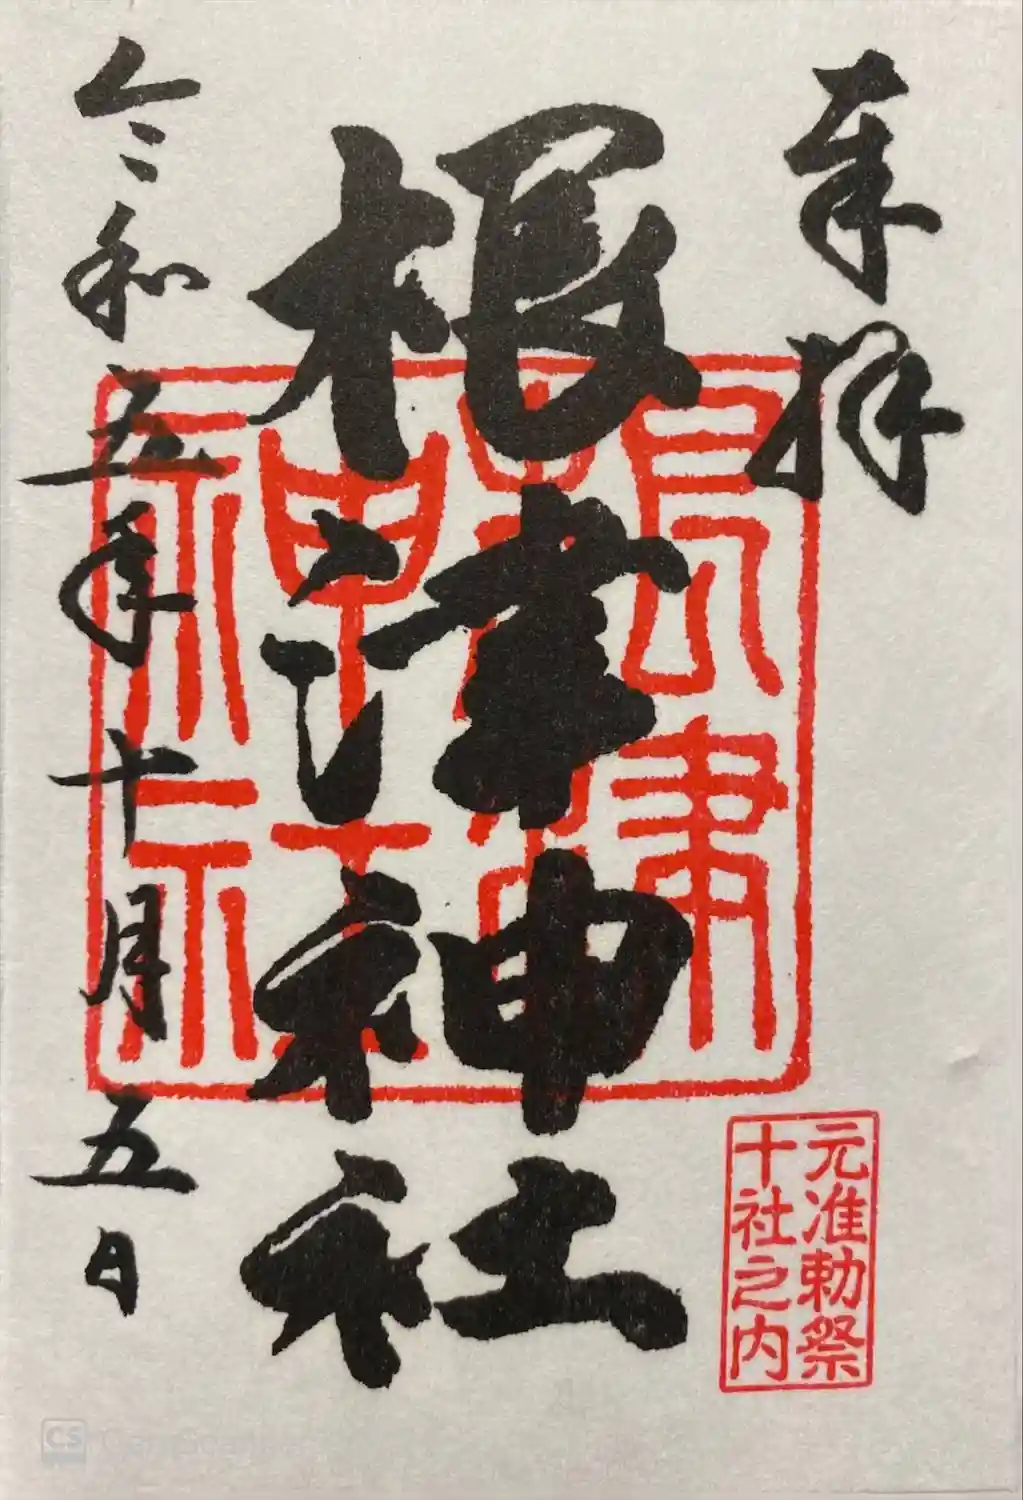 奉拝
根津神社
令和五年十月五日
元准勅祭
十社之内
CS CamScanner